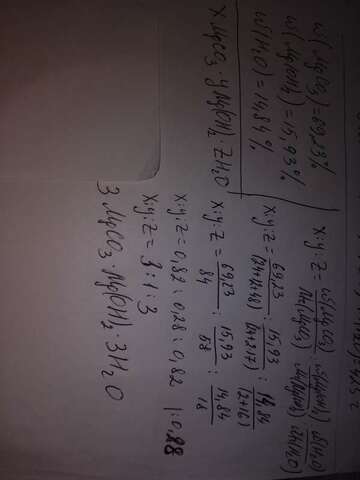 ω(MgCO₃)=69,23%
ω(Mg(OH)₂)=15,93%
ω(H₂O)=14,84%
x MgCO₃ · y Mg(OH)₂ · z H₂O
x:y:z = ω(MgCO₃)/Mr(MgCO₃) : ω(Mg(OH)₂)/Mr(Mg(OH)₂) : ω(H₂O)/Mr(H₂O)
x:y:z = 69,23/(24+12+48) : 15,93/(24+2·17) : 14,84/(2+16)
x:y:z = 69,23/84 : 15,93/58 : 14,84/18
x:y:z = 0,82 : 0,28 : 0,82 |:0,28
x:y:z = 3:1:3
3 MgCO₃ · Mg(OH)₂ · 3H₂O